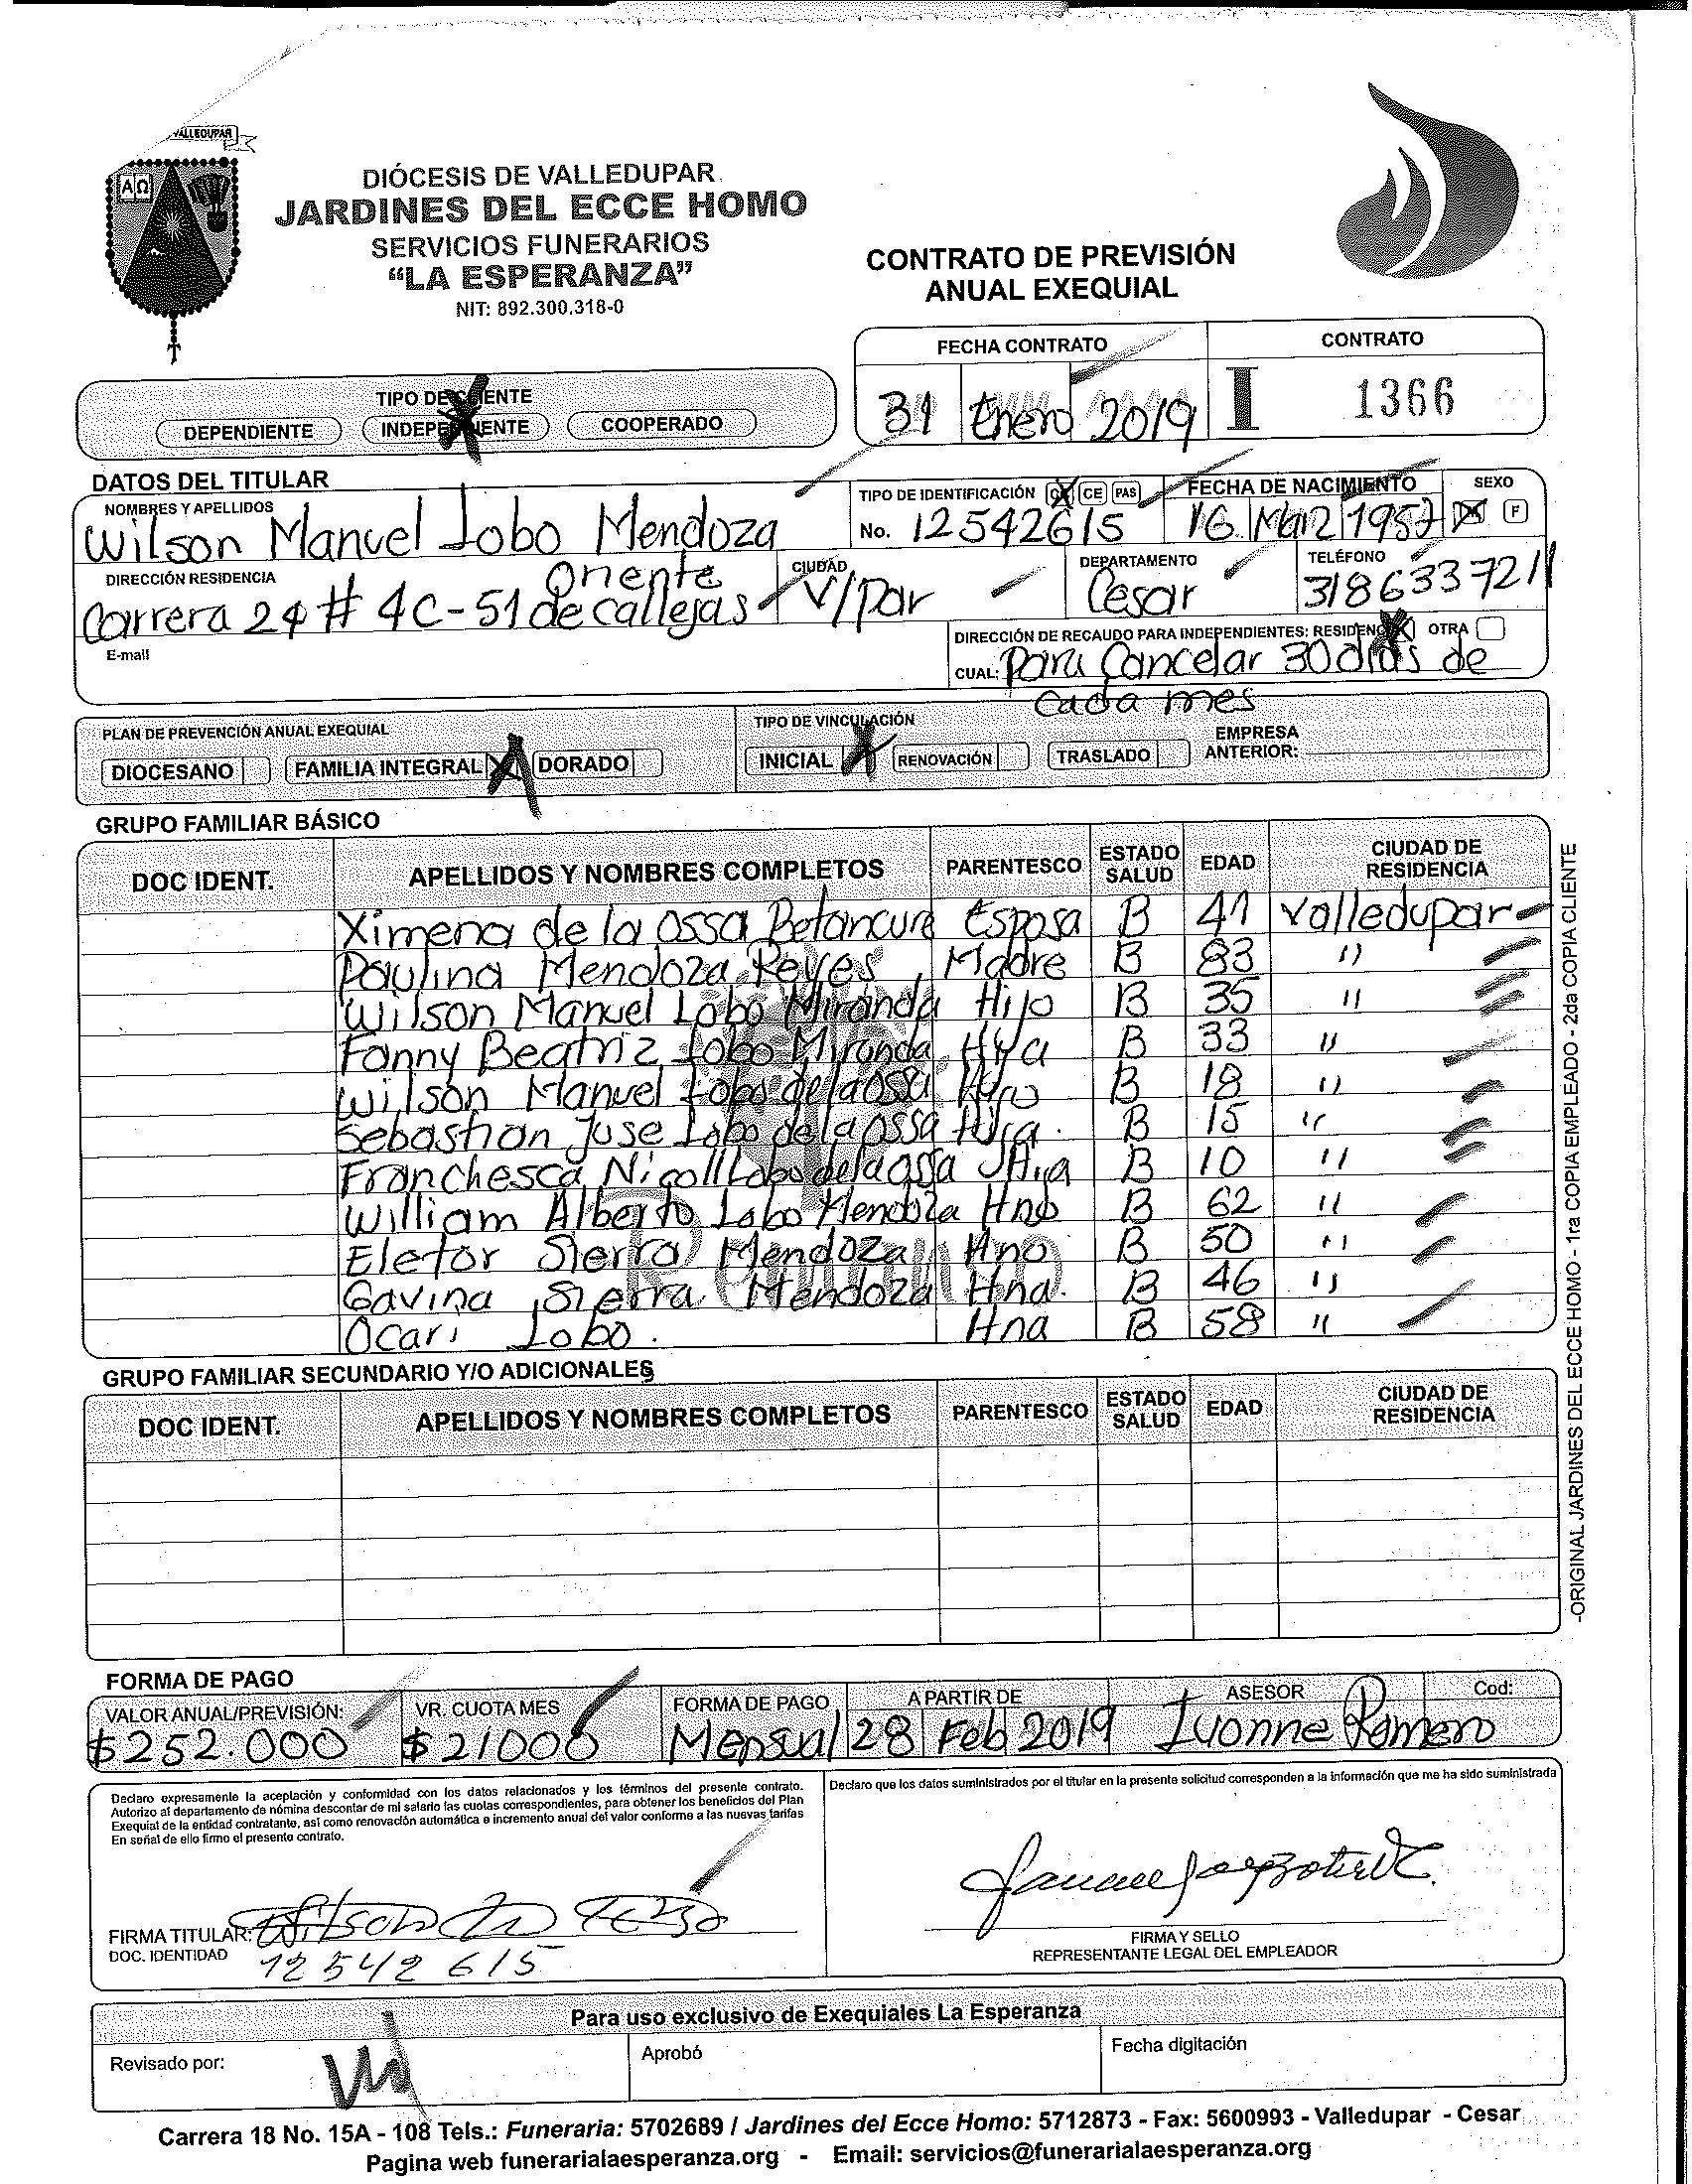 VALLEDUPAR
Α Ω
DIÓCESIS DE VALLEDUPAR
JARDINES DEL ECCE HOMO
SERVICIOS FUNERARIOS
“LA ESPERANZA”
NIT: 892.300.318-0
CONTRATO DE PREVISIÓN
ANUAL EXEQUIAL
FECHA CONTRATO CONTRATO
31 Enero 2019 I 1366
TIPO DE CLIENTE
DEPENDIENTE INDEPENDIENTE COOPERADO
DATOS DEL TITULAR
NOMBRES Y APELLIDOS TIPO DE IDENTIFICACIÓN CC CE PAS FECHA DE NACIMIENTO SEXO
Wilson Manuel Lobo Mendoza No. 12542615 16 Mar 1957 X F
DIRECCIÓN RESIDENCIA CIUDAD DEPARTAMENTO TELÉFONO
Carrera 24 # 4C-51 Oriente de callejas V/par Cesar 3186337211
E-mail
DIRECCIÓN DE RECAUDO PARA INDEPENDIENTES: RESIDENCIA X OTRA
CUAL: Para Cancelar 30 dias de
cada mes
PLAN DE PREVENCIÓN ANUAL EXEQUIAL TIPO DE VINCULACIÓN
DIOCESANO FAMILIA INTEGRAL X DORADO INICIAL X RENOVACIÓN TRASLADO EMPRESA ANTERIOR:
GRUPO FAMILIAR BÁSICO
DOC IDENT. APELLIDOS Y NOMBRES COMPLETOS PARENTESCO ESTADO SALUD EDAD CIUDAD DE RESIDENCIA
Ximena de la Ossa Betancure Esposa B 41 Valledupar
Paulina Mendoza Reyes Madre B 83 "
Wilson Manuel Lobo Miranda Hijo B 35 "
Fanny Beatriz Lobo Miranda Hija B 33 "
Wilson Manuel Lobo de la Ossa Hijo B 18 "
Sebastian Jose Lobo de la Ossa B 15 "
Franchesca Nicoll Lobo de la Ossa Hija B 10 "
William Alberto Lobo Mendoza Hno B 62 "
Eletor Sierra Mendoza Hno B 50 "
Gavina Sierra Mendoza Hna. B 46 "
Ocari Lobo. Hna B 58 "
GRUPO FAMILIAR SECUNDARIO Y/O ADICIONALES
DOC IDENT. APELLIDOS Y NOMBRES COMPLETOS PARENTESCO ESTADO SALUD EDAD CIUDAD DE RESIDENCIA
-ORIGINAL JARDINES DEL ECCE HOMO - 1ra COPIA EMPLEADO - 2da COPIA CLIENTE
FORMA DE PAGO
VALOR ANUAL/PREVISIÓN: VR. CUOTA MES FORMA DE PAGO A PARTIR DE ASESOR Cod:
$252.000 $21000 Mensual 28 Feb 2019 Ivonne Romero
Declaro expresamente la aceptación y conformidad con los datos relacionados y los términos del presente contrato.
Autorizo al departamento de nómina descontar de mi salario las cuotas correspondientes, para obtener los beneficios del Plan
Exequial de la entidad contratante, así como renovación automática e incremento anual del valor conforme a las nuevas tarifas
En señal de ello firmo el presente contrato.
Declaro que los datos suministrados por el titular en la presente solicitud corresponden a la información que me ha sido suministrada
FIRMA TITULAR:
DOC. IDENTIDAD 12542615
FIRMA Y SELLO
REPRESENTANTE LEGAL DEL EMPLEADOR
Para uso exclusivo de Exequiales La Esperanza
Revisado por: Aprobó Fecha digitación
Carrera 18 No. 15A - 108 Tels.: Funeraria: 5702689 / Jardines del Ecce Homo: 5712873 - Fax: 5600993 - Valledupar - Cesar
Pagina web funerarialaesperanza.org - Email: servicios@funerarialaesperanza.org